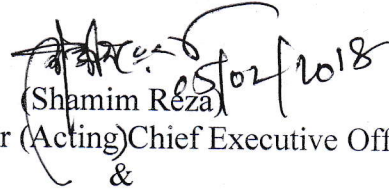 05/02/2018
(Shamim Reza)
r (Acting)Chief Executive Off
&